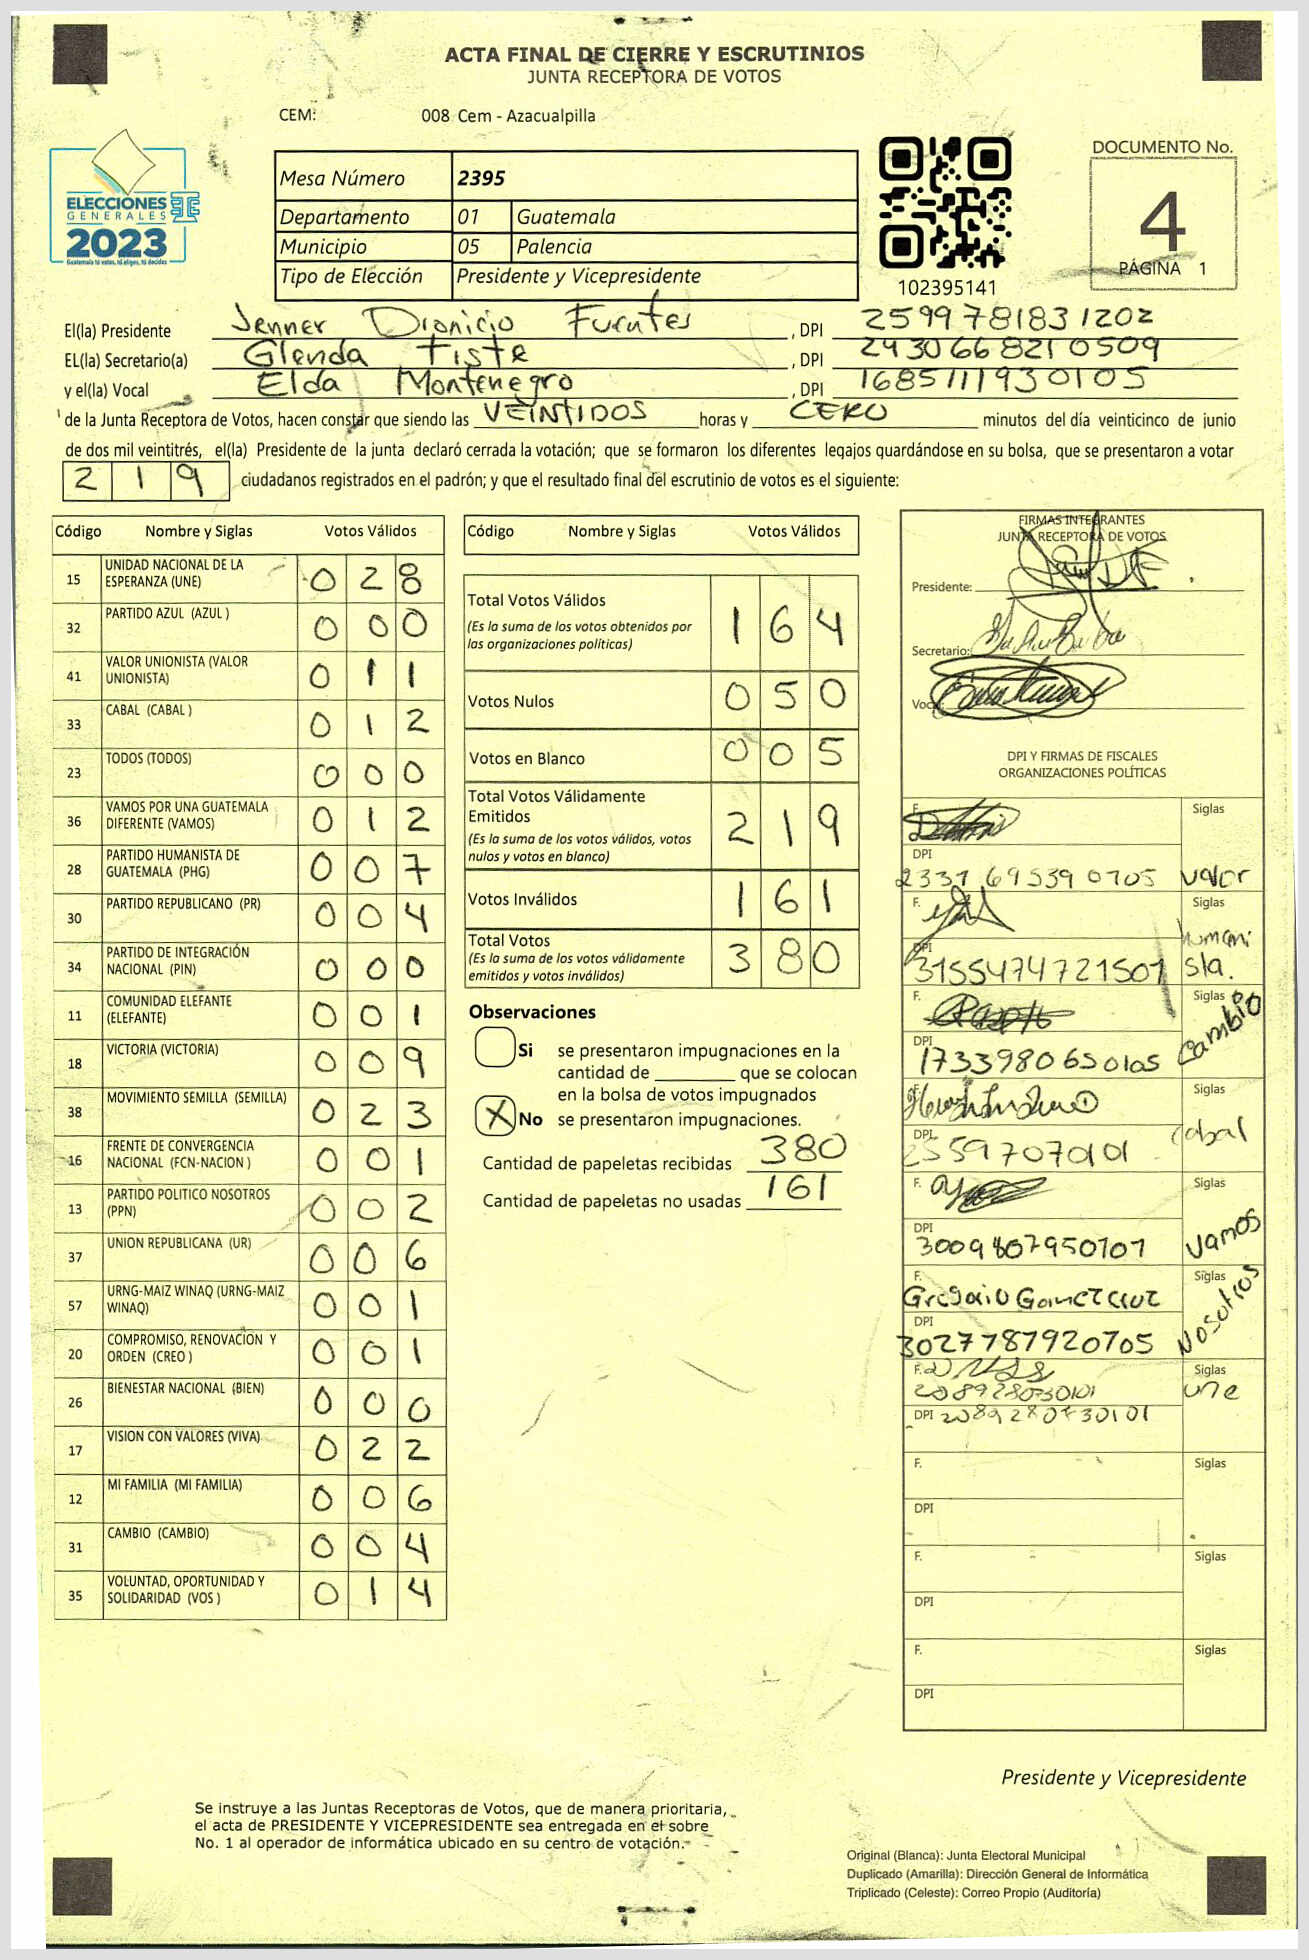 ACTA FINAL DE CIERRE Y ESCRUTINIOS
JUNTA RECEPTORA DE VOTOS
CEM: 008 Cem - Azacualpilla
ELECCIONES
GENERALES
2023
Guatemala tú votas, tú eliges, tú decides
Mesa Número 2395
Departamento 01 Guatemala
Municipio 05 Palencia
Tipo de Elección Presidente y Vicepresidente
102395141
DOCUMENTO No.
4
PÁGINA 1
El(la) Presidente Jenner Dionicio Fuentes, DPI 2599781831202
EL(la) Secretario(a) Glenda Tiste, DPI 2430668210509
y el(la) Vocal Elda Montenegro, DPI 1685111930105
de la Junta Receptora de Votos, hacen constar que siendo las VEINTIDOS horas y CERO minutos del día veinticinco de junio
de dos mil veintitrés, el(la) Presidente de la junta declaró cerrada la votación; que se formaron los diferentes legajos guardándose en su bolsa, que se presentaron a votar
219 ciudadanos registrados en el padrón; y que el resultado final del escrutinio de votos es el siguiente:
Código Nombre y Siglas Votos Válidos
15 UNIDAD NACIONAL DE LA ESPERANZA (UNE) 028
32 PARTIDO AZUL (AZUL ) 000
41 VALOR UNIONISTA (VALOR UNIONISTA) 011
33 CABAL (CABAL ) 012
23 TODOS (TODOS) 000
36 VAMOS POR UNA GUATEMALA DIFERENTE (VAMOS) 012
28 PARTIDO HUMANISTA DE GUATEMALA (PHG) 007
30 PARTIDO REPUBLICANO (PR) 004
34 PARTIDO DE INTEGRACIÓN NACIONAL (PIN) 000
11 COMUNIDAD ELEFANTE (ELEFANTE) 001
18 VICTORIA (VICTORIA) 009
38 MOVIMIENTO SEMILLA (SEMILLA) 023
16 FRENTE DE CONVERGENCIA NACIONAL (FCN-NACION ) 001
13 PARTIDO POLITICO NOSOTROS (PPN) 002
37 UNION REPUBLICANA (UR) 006
57 URNG-MAIZ WINAQ (URNG-MAIZ WINAQ) 001
20 COMPROMISO, RENOVACIÓN Y ORDEN (CREO ) 001
26 BIENESTAR NACIONAL (BIEN) 000
17 VISION CON VALORES (VIVA) 022
12 MI FAMILIA (MI FAMILIA) 006
31 CAMBIO (CAMBIO) 004
35 VOLUNTAD, OPORTUNIDAD Y SOLIDARIDAD (VOS ) 014
Código Nombre y Siglas Votos Válidos
Total Votos Válidos 164
(Es la suma de los votos obtenidos por
las organizaciones políticas)
Votos Nulos 050
Votos en Blanco 005
Total Votos Válidamente
Emitidos 219
(Es la suma de los votos válidos, votos
nulos y votos en blanco)
Votos Inválidos 161
Total Votos 380
(Es la suma de los votos válidamente
emitidos y votos inválidos)
Observaciones
Si se presentaron impugnaciones en la
cantidad de ________ que se colocan
en la bolsa de votos impugnados
X No se presentaron impugnaciones.
Cantidad de papeletas recibidas 380
Cantidad de papeletas no usadas 161
FIRMAS INTEGRANTES
JUNTA RECEPTORA DE VOTOS
Presidente:
Secretario:
Vocal
DPI Y FIRMAS DE FISCALES
ORGANIZACIONES POLÍTICAS
F. Siglas
DPI
2331 69539 0705 valor
F. Siglas
DPI humani
3155474721501 sta.
F. Siglas
DPI Cambio
1733980650105
Siglas
DPI cabal
25597070101
F. Siglas
DPI
3009807950101 Vamos
F. Siglas
Gregorio Gomez Cruz
DPI Nosotros
3027787920705
F. Siglas
2089280730101 une
DPI 2089280730101
F. Siglas
DPI
F. Siglas
DPI
F. Siglas
DPI
Presidente y Vicepresidente
Se instruye a las Juntas Receptoras de Votos, que de manera prioritaria,
el acta de PRESIDENTE Y VICEPRESIDENTE sea entregada en el sobre
No. 1 al operador de informática ubicado en su centro de votación.
Original (Blanca): Junta Electoral Municipal
Duplicado (Amarilla): Dirección General de Informática
Triplicado (Celeste): Correo Propio (Auditoría)